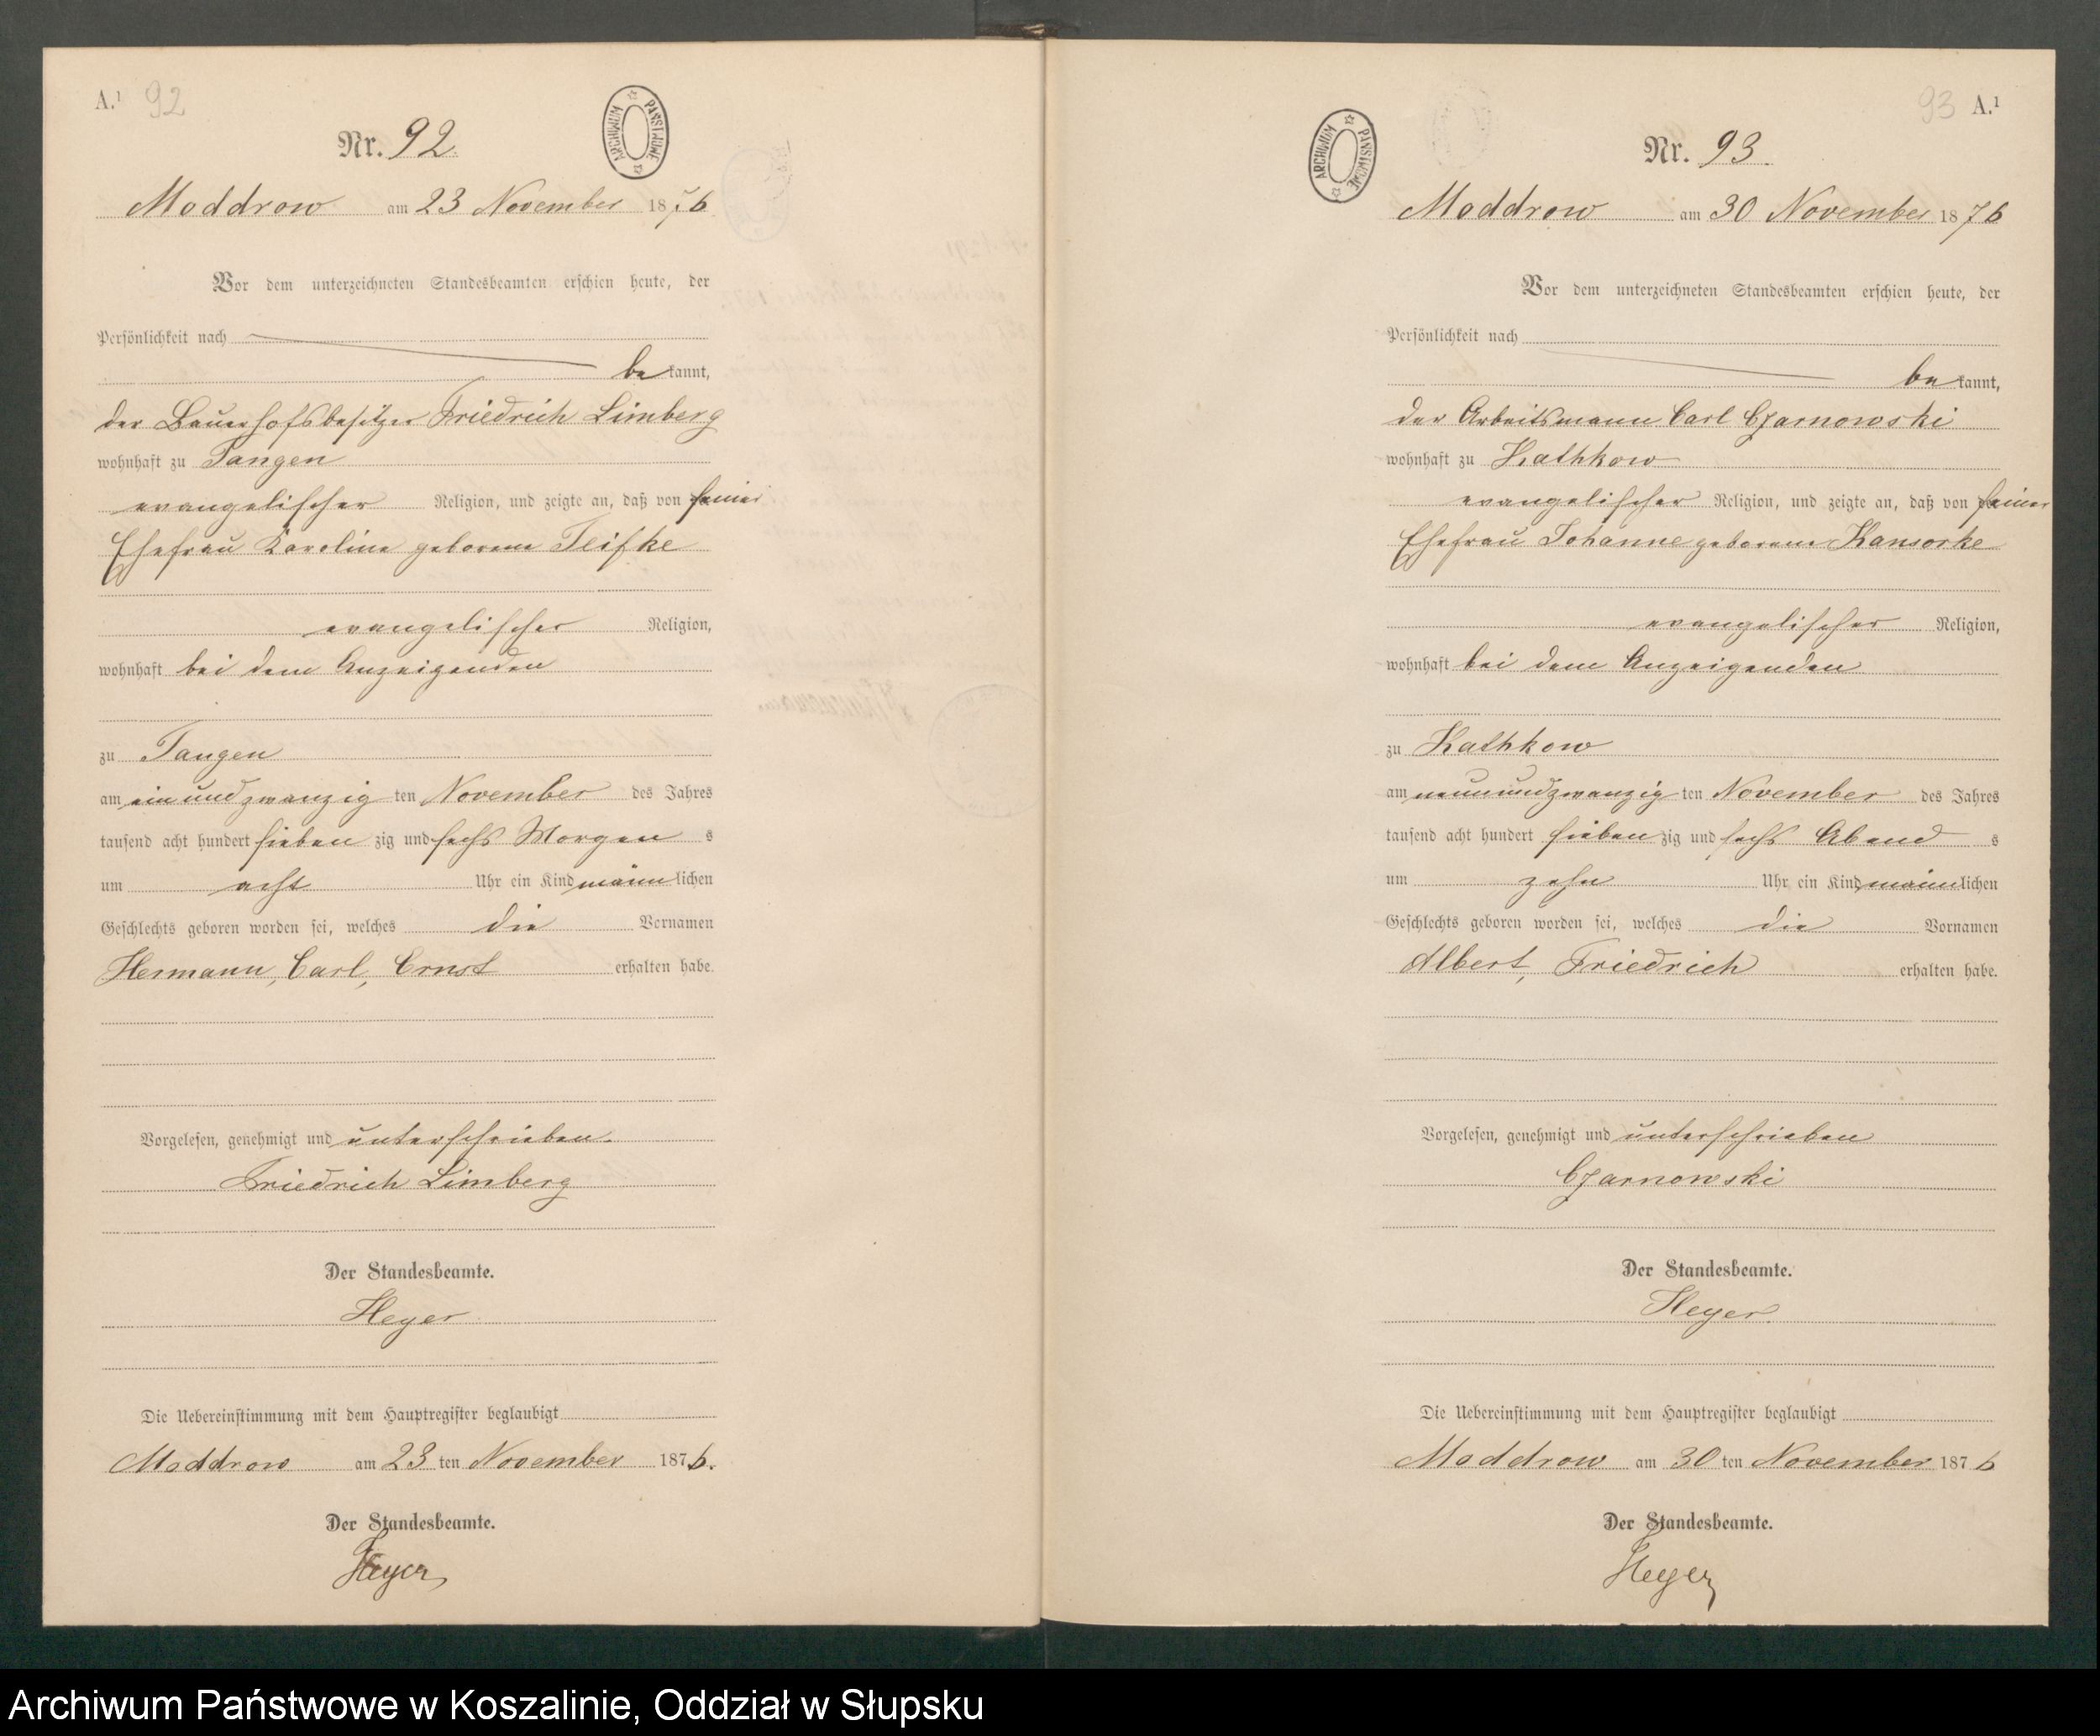 A.¹ 92
Nr. 92.
ARCHIWUM PAŃSTWOWE
Moddrow am 23 November 1876
Vor dem unterzeichneten Standesbeamten erschien heute, der
Persönlichkeit nach
bekannt,
der Bauerhofsbesitzer Friedrich Limberg
wohnhaft zu Tangen
evangelischer Religion, und zeigte an, daß von seiner
Ehefrau Karoline geborene Teifke
evangelischer Religion,
wohnhaft bei dem Anzeigenden
zu Tangen
am einundzwanzig ten November des Jahres
tausend acht hundert sieben zig und sechs Morgen s
um acht Uhr ein Kind männlichen
Geschlechts geboren worden sei, welches die Vornamen
Hermann, Carl, Ernst erhalten habe.
Vorgelesen, genehmigt und unterschrieben.
Friedrich Limberg
Der Standesbeamte.
Heyer
Die Uebereinstimmung mit dem Hauptregister beglaubigt
Moddrow am 23 ten November 1876.
Der Standesbeamte.
Heyer
93 A.¹
Nr. 93.
ARCHIWUM PAŃSTWOWE
Moddrow am 30 November 1876
Vor dem unterzeichneten Standesbeamten erschien heute, der
Persönlichkeit nach
bekannt,
der Arbeitsmann Carl Czarnowski
wohnhaft zu Kathkow
evangelischer Religion, und zeigte an, daß von seiner
Ehefrau Johanne geborene Kansorke
evangelischer Religion,
wohnhaft bei dem Anzeigenden
zu Kathkow
am neunundzwanzig ten November des Jahres
tausend acht hundert sieben zig und sechs Abend s
um zehn Uhr ein Kind männlichen
Geschlechts geboren worden sei, welches die Vornamen
Albert, Friedrich erhalten habe.
Vorgelesen, genehmigt und unterschrieben
Czarnowski
Der Standesbeamte.
Heyer.
Die Uebereinstimmung mit dem Hauptregister beglaubigt
Moddrow am 30 ten November 1876
Der Standesbeamte.
Heyer
Archiwum Państwowe w Koszalinie, Oddział w Słupsku